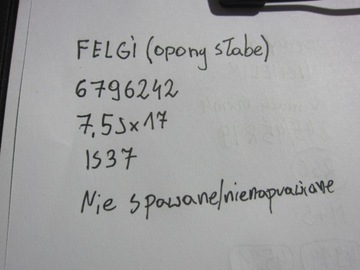 FELGI (opony słabe)
6796242
7,5Jx17
IS37
Nie spawane/nienaprawiane